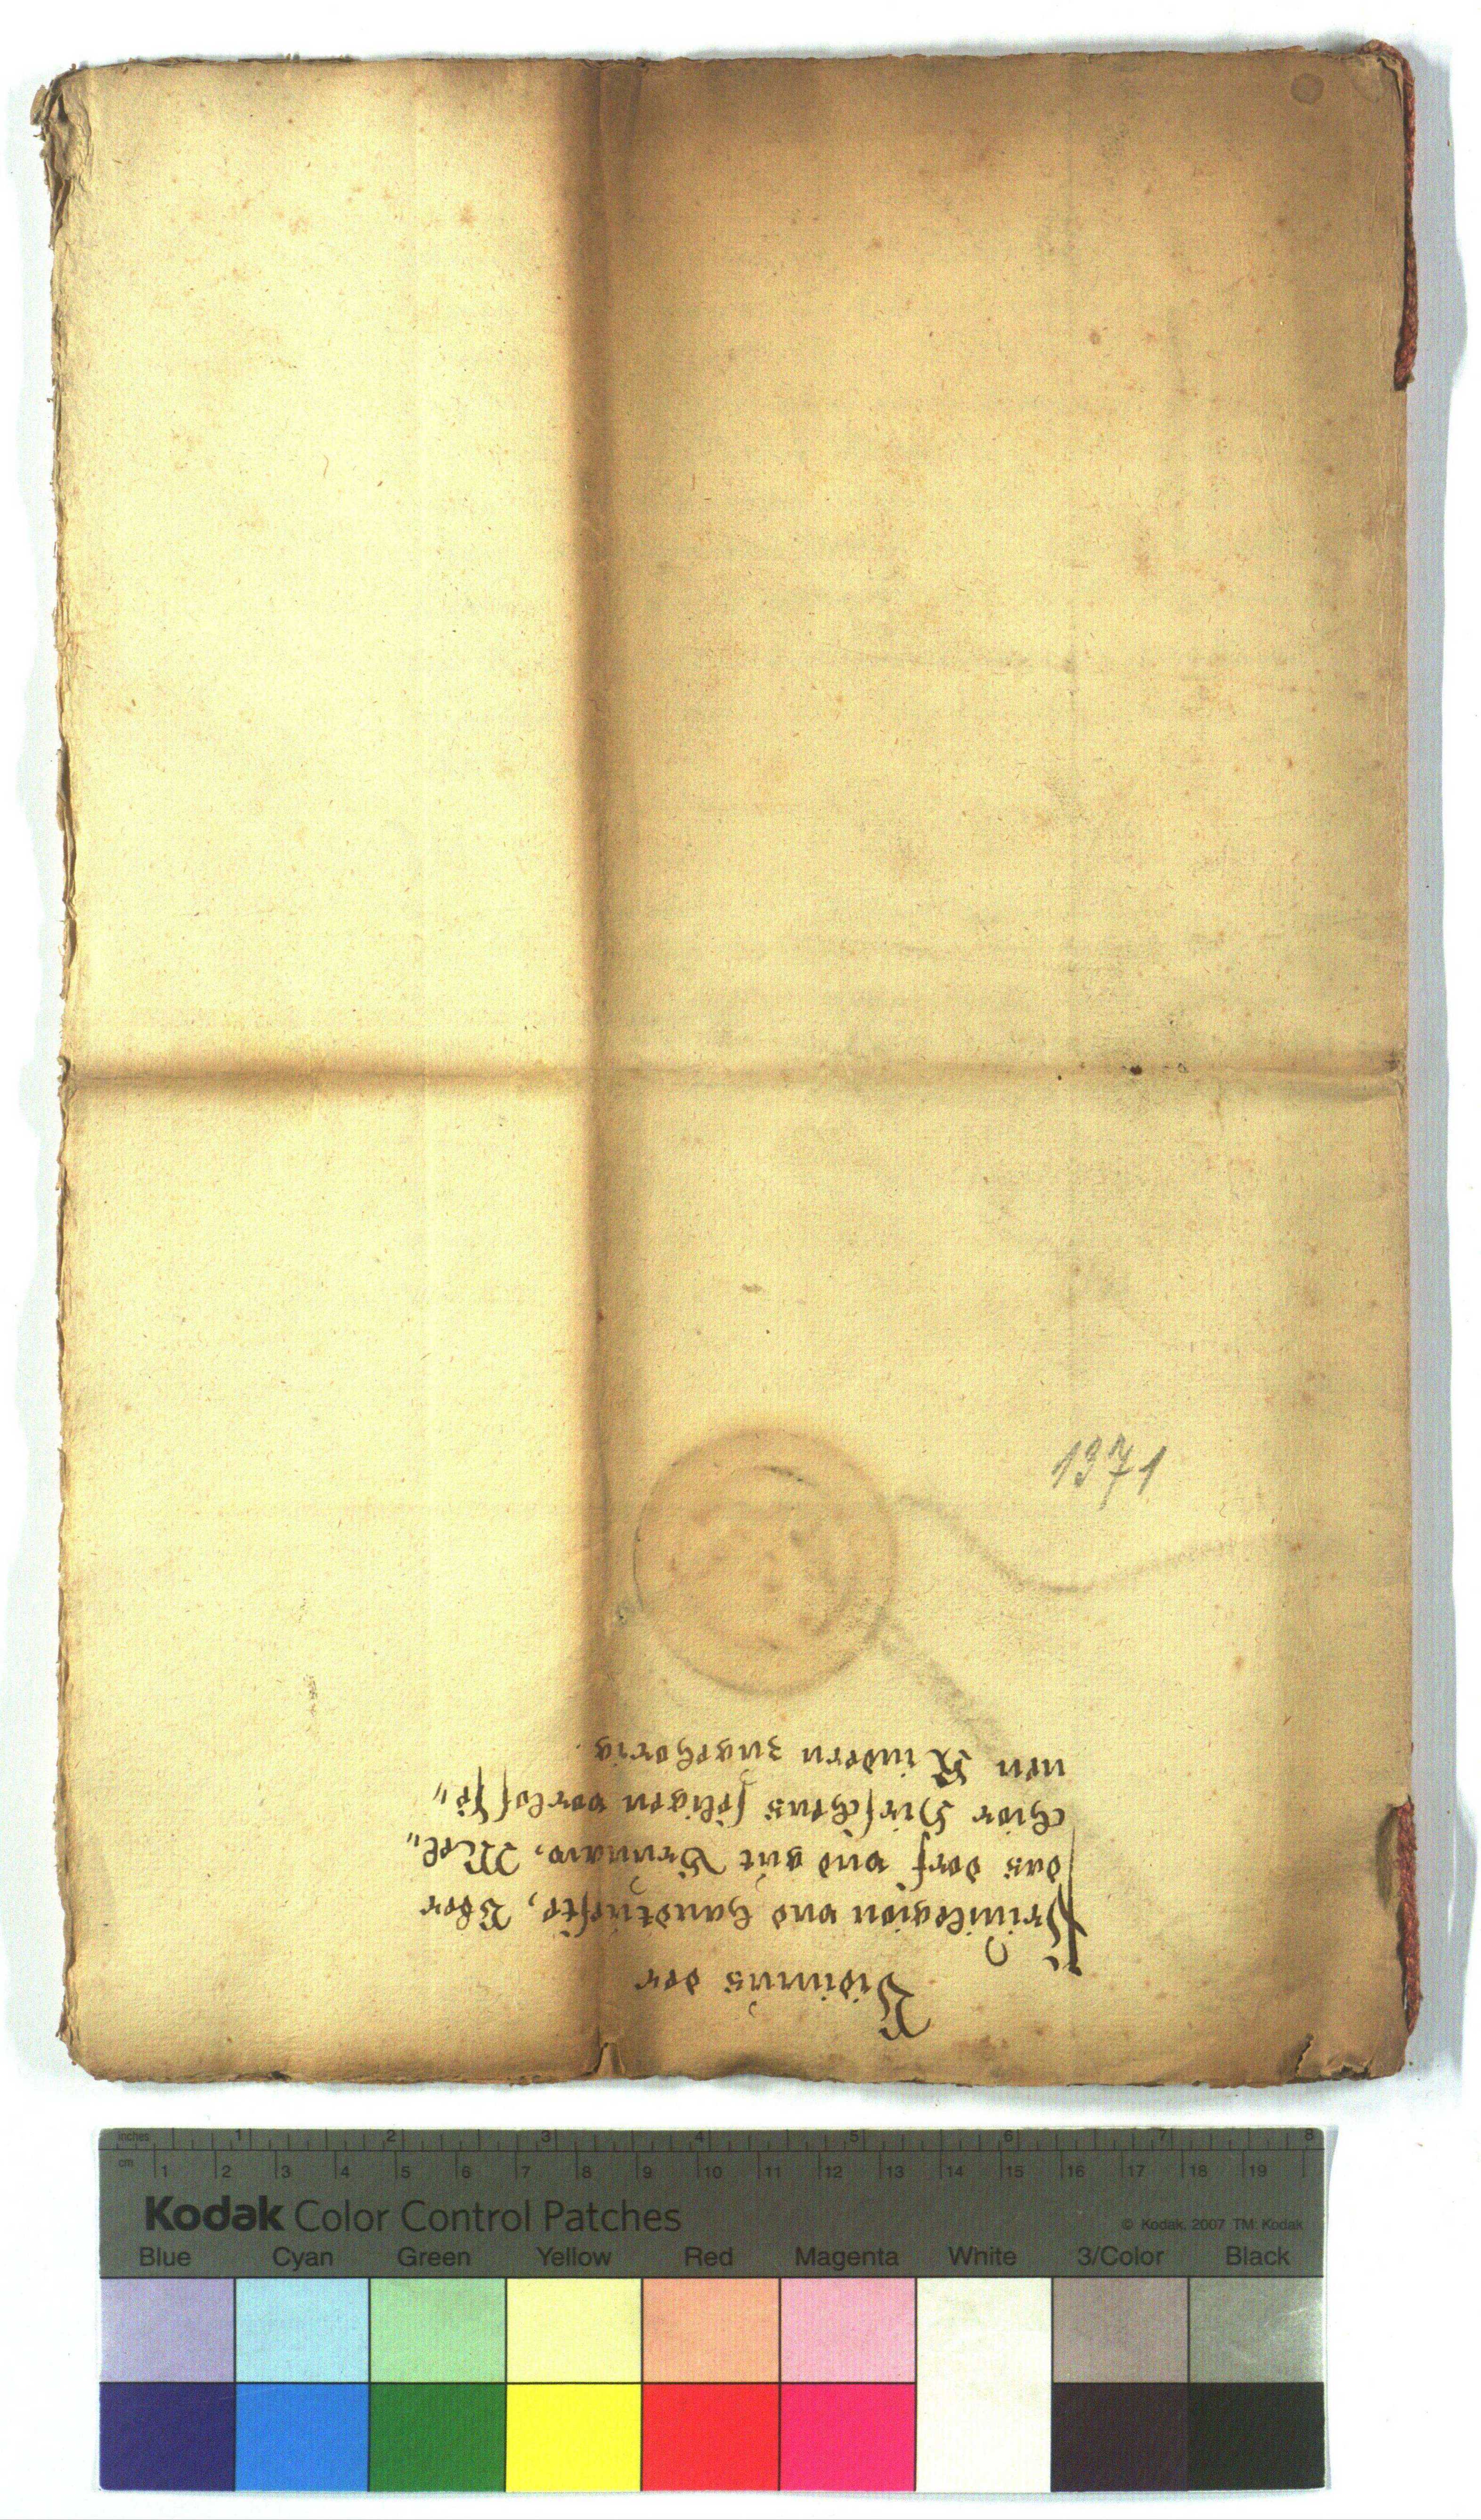 1371
Vidimus der
Priuilegien vnd handtueste, Vber
das dorf vnd gut Brunaw, Mel„
chior Hirsches seligen vorlosse„
nen Kindern zugehorig.
inches 1 2 3 4 5 6 7 8
cm 1 2 3 4 5 6 7 8 9 10 11 12 13 14 15 16 17 18 19
Kodak Color Control Patches
© Kodak, 2007 TM: Kodak
Blue Cyan Green Yellow Red Magenta White 3/Color Black